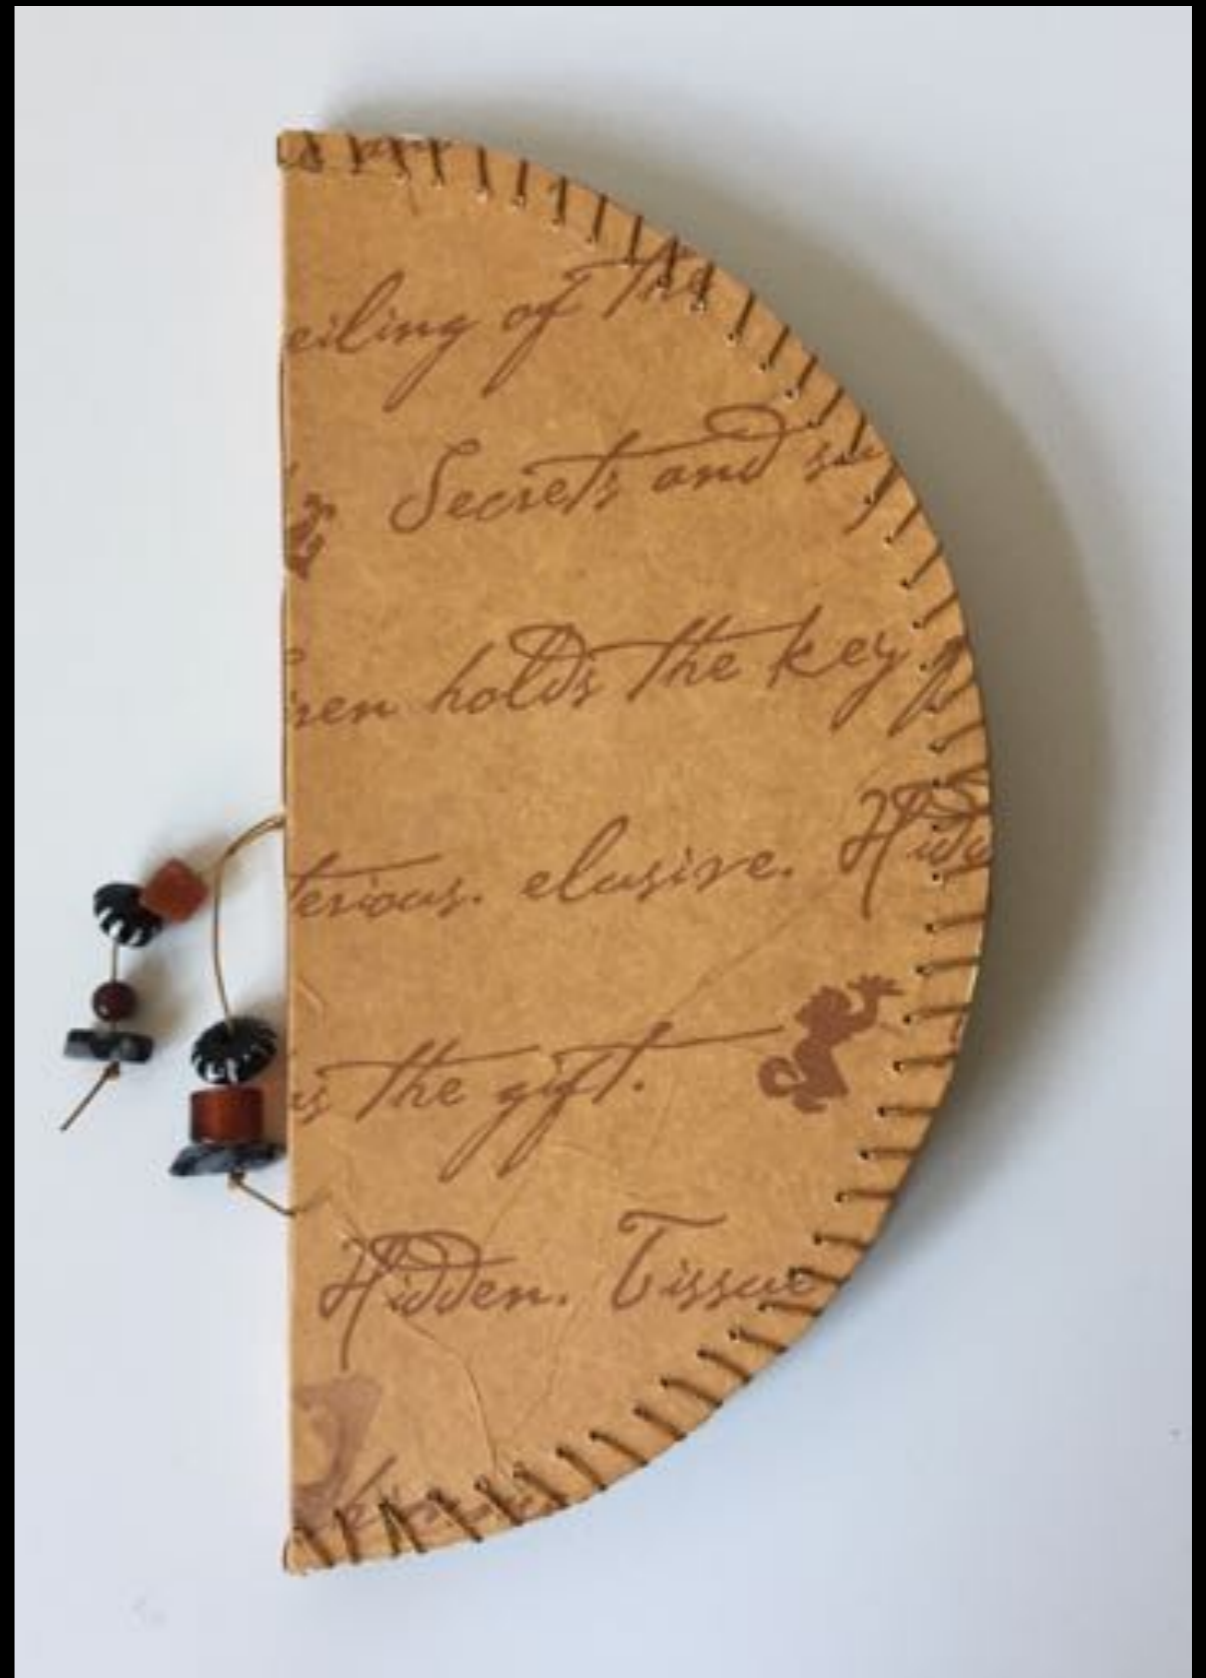 eiling of The
Secrets and
ren holds the key
terious. elusive. Hidd
is the gift.
Hidden. Tissue